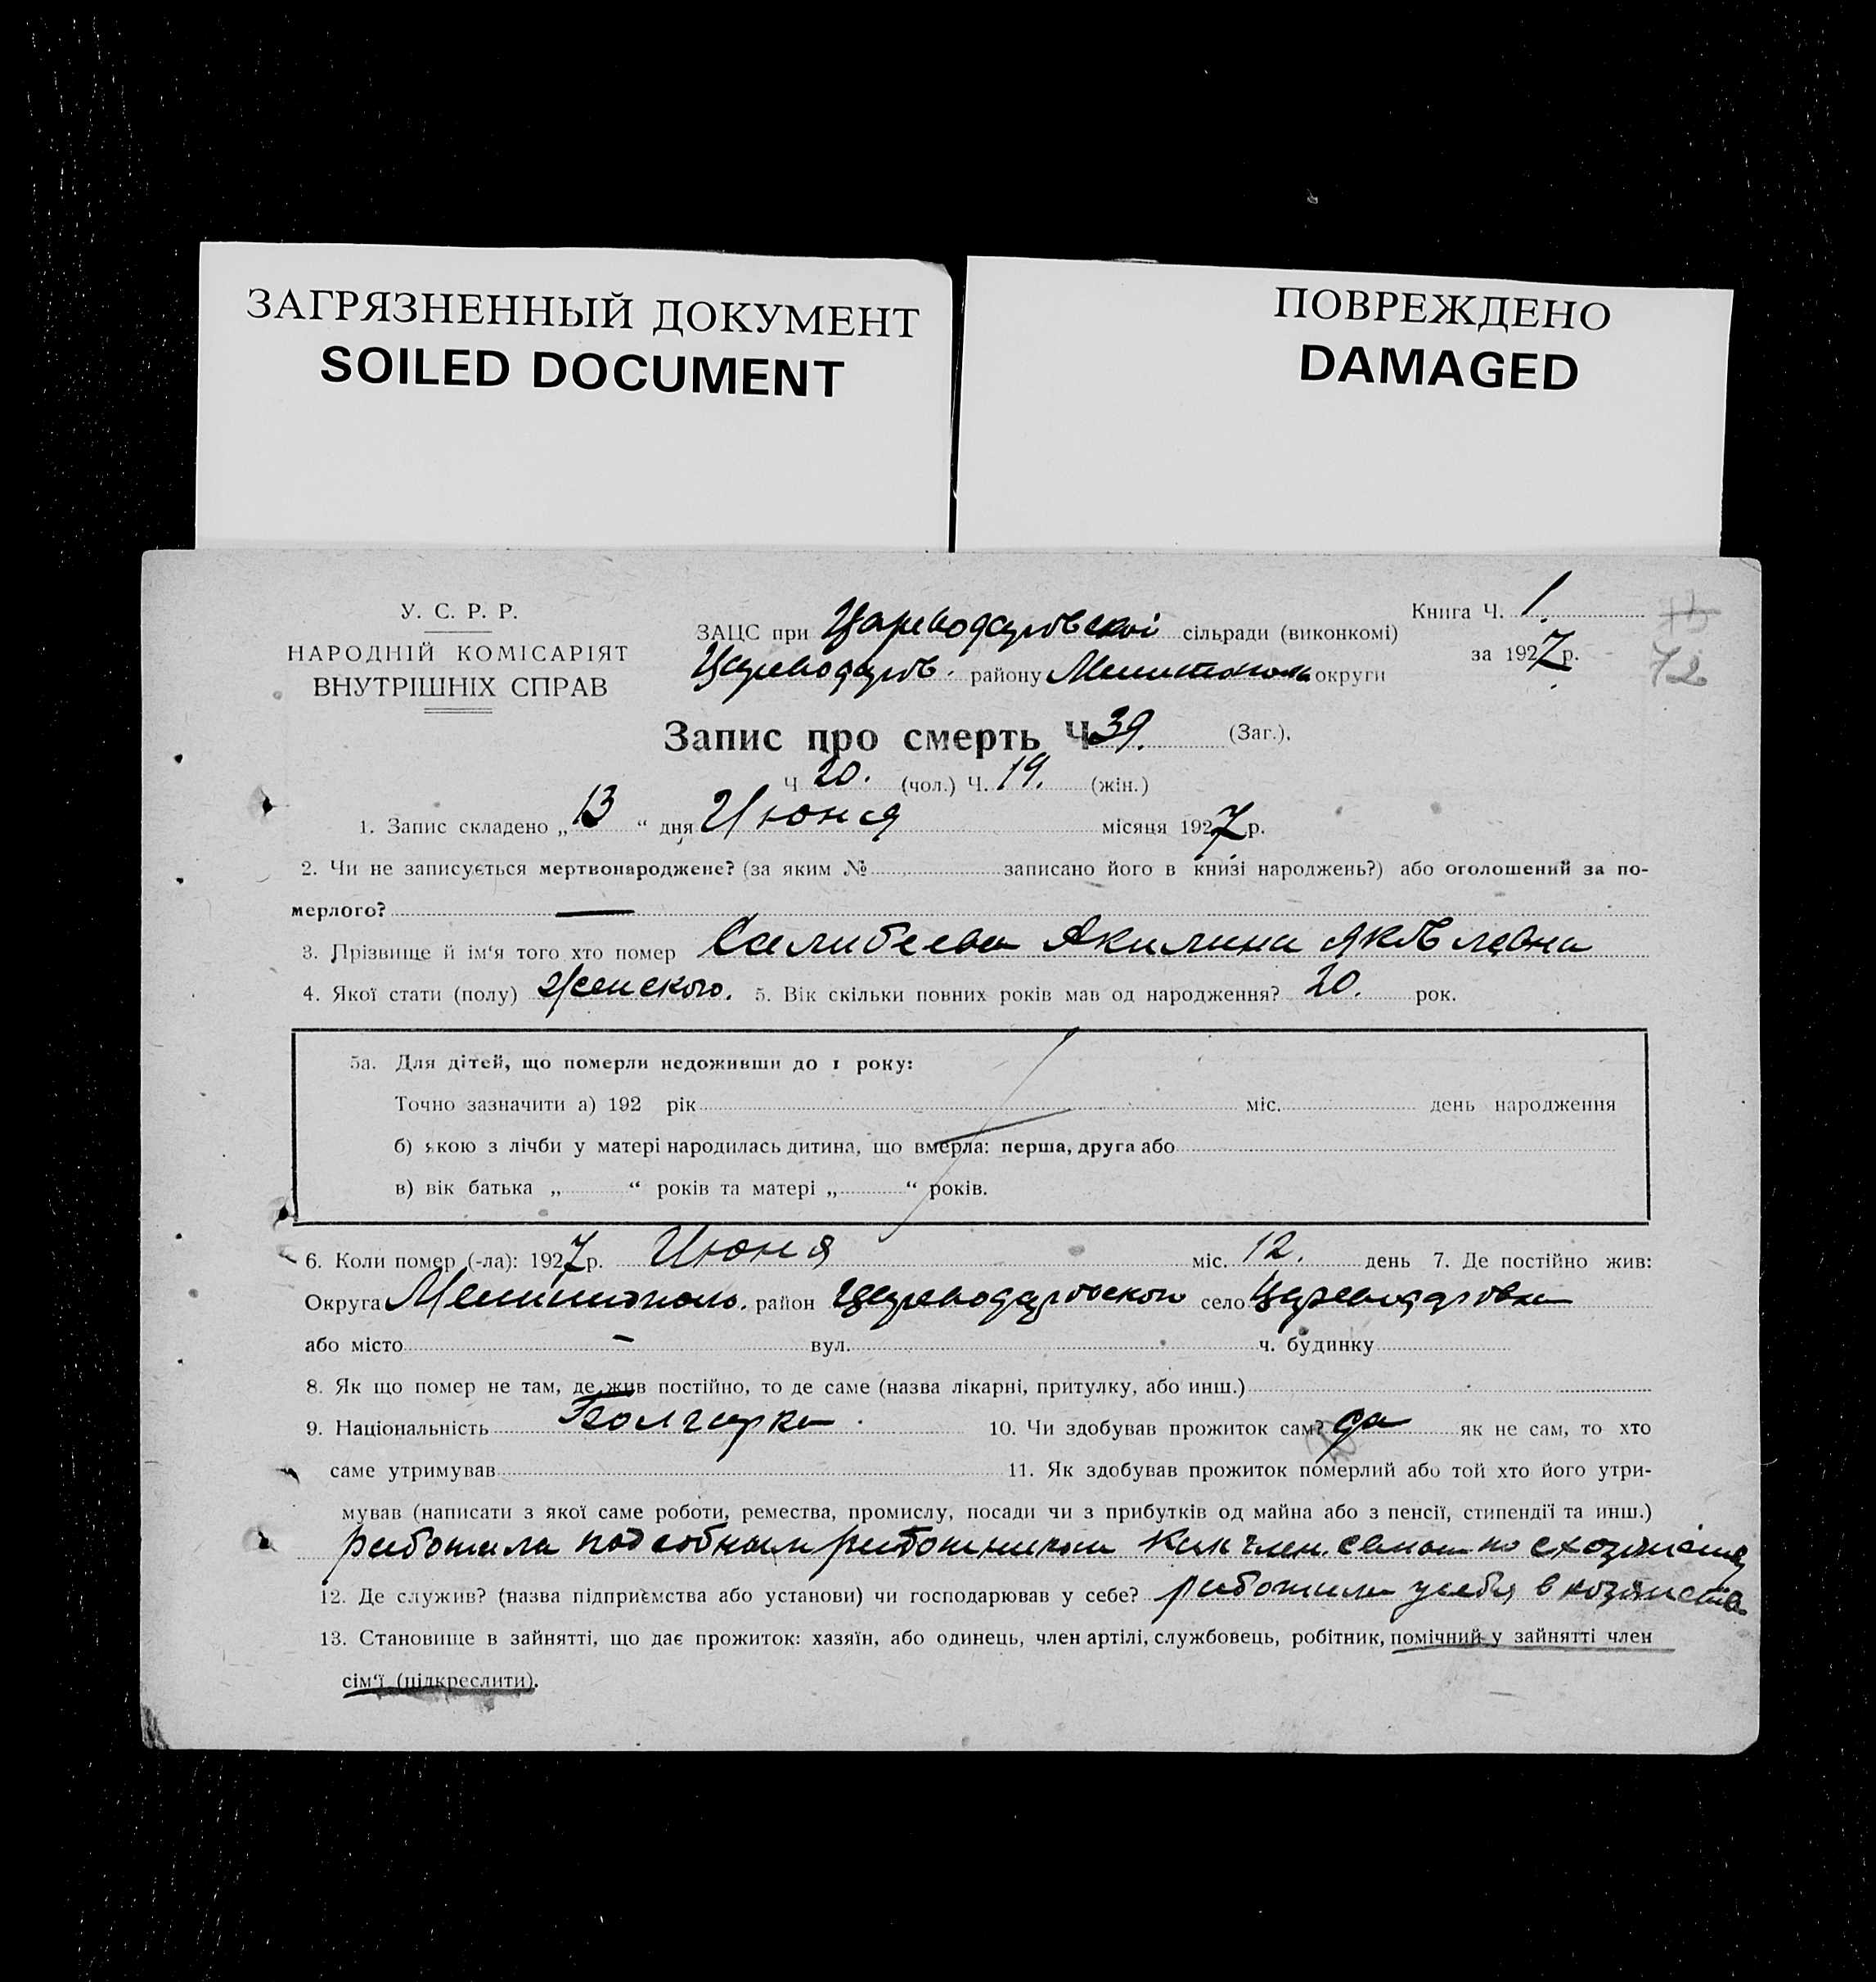 ЗАГРЯЗНЕННЫЙ ДОКУМЕНТ
SOILED DOCUMENT
ПОВРЕЖДЕНО
DAMAGED
У. С. Р. Р.
НАРОДНІЙ КОМІСАРІЯТ
ВНУТРІШНІХ СПРАВ
ЗАЦС при Цареводаровскоі сільради (виконкомі)
Цареводаров. району Мелитополь округи
Книга Ч. 1.
за 1927 р.
72
Запис про смерть Ч 39. (Заг.).
Ч 20. (чол.) Ч. 19. (жін.)
1. Запис складено „ 13 “ дня Июня місяця 1927 р.
2. Чи не записується мертвонароджене? (за яким № записано його в книзі народжень?) або оголошений за по-
мерлого? —
3. Прізвище й ім‘я того хто помер Салибеева Акилина Яковлевна
4. Якої стати (полу) Женского. 5. Вік скільки повних років мав од народження? 20. рок.
5а. Для дітей, що померли недоживши до 1 року:
Точно зазначити а) 192 рік міс. день народження
б) якою з лічби у матері народилась дитина, що вмерла: перша, друга або
в) вік батька „ “ років та матері „ “ років.
6. Коли помер (-ла): 1927 р. Июня міс. 12. день 7. Де постійно жив:
Округа Мелитополь. район Цареводаровского село Цареводаровка
або місто — вул. ч. будинку
8. Як що помер не там, де жив постійно, то де саме (назва лікарні, притулку, або инш.)
9. Національність Болгарка. 10. Чи здобував прожиток сам? да як не сам, то хто
саме утримував 11. Як здобував прожиток померлий або той хто його утри-
мував (написати з якої саме роботи, ремества, промислу, посади чи з прибутків од майна або з пенсії, стипендії та инш.)
работала подсобным работником как член. по схозяйству
12. Де служив? (назва підприємства або установи) чи господарював у себе? работала у себя в хозяйстве
13. Становище в зайнятті, що дає прожиток: хазяїн, або одинець, член артілі, службовець, робітник, помічний у зайнятті член
сім‘ї (підкреслити).